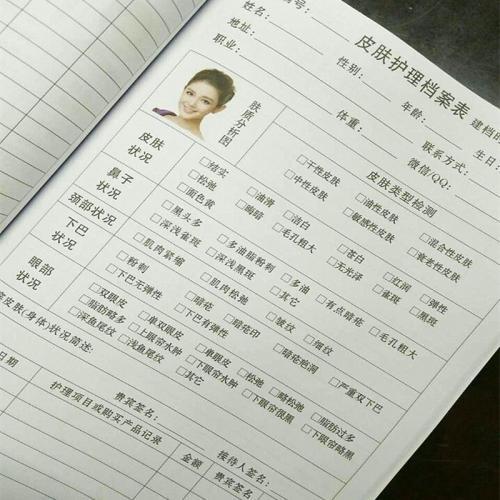 皮肤护理档案表
编号:
建档
姓名:
性别:
年龄:
生日:
地址:
体重:
联系方式:
职业:
微信/QQ:
肤质分析图
皮肤类型检测
□干性皮肤 □油性皮肤 □混合性皮肤
□中性皮肤 □敏感性皮肤 □衰老性皮肤
皮肤状况
□结实 □油滑 □洁白 □苍白 □红润 □弹性
□松弛 □蜡暗 □毛孔粗大 □无光泽 □雀斑 □黑斑
□面色黄
鼻子状况
□黑头多 □多油脂粉刺 □多油 □有点暗疮 □毛孔粗大
□深浅雀斑 □深浅黑斑 □其它
颈部状况
□肌肉紧缩 □肌肉松弛 □皱纹 □细纹
下巴状况
□粉刺 □暗疮 □暗疮印 □暗疮疤洞 □严重双下巴
□下巴无弹性 □下巴有弹性
眼部状况
□双眼皮 □单双眼皮 □单眼皮 □松弛 □略松弛 □脂肪过多
□脂肪略多 □上眼帘水肿 □下眼帘水肿 □下眼帘很黑 □下眼帘略黑
□深鱼尾纹 □浅鱼尾纹 □其它
皮肤(身体)状况简述:
贵宾签名:
日期
护理项目或购买产品记录
金额
接待人签名: